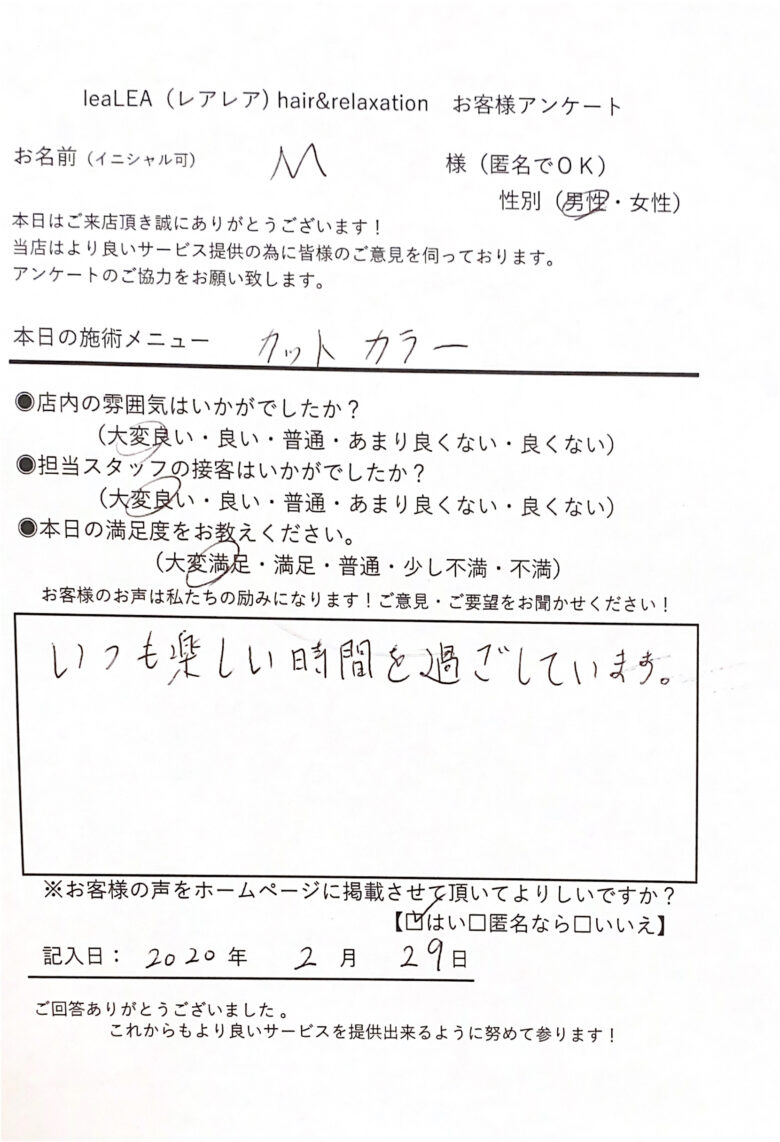 leaLEA（レアレア）hair&relaxation　お客様アンケート
お名前（イニシャル可）　M　様（匿名でＯＫ）
性別（男性・女性）
本日はご来店頂き誠にありがとうございます！
当店はより良いサービス提供の為に皆様のご意見を伺っております。
アンケートのご協力をお願い致します。
本日の施術メニュー　カット カラー
◉店内の雰囲気はいかがでしたか？
（大変良い・良い・普通・あまり良くない・良くない）
◉担当スタッフの接客はいかがでしたか？
（大変良い・良い・普通・あまり良くない・良くない）
◉本日の満足度をお教えください。
（大変満足・満足・普通・少し不満・不満）
お客様のお声は私たちの励みになります！ご意見・ご要望をお聞かせください！
いつも楽しい時間を過ごしています。
※お客様の声をホームページに掲載させて頂いてよりしいですか？
【☑はい□匿名なら□いいえ】
記入日： 2020 年 2 月 29 日
ご回答ありがとうございました。
これからもより良いサービスを提供出来るように努めて参ります！